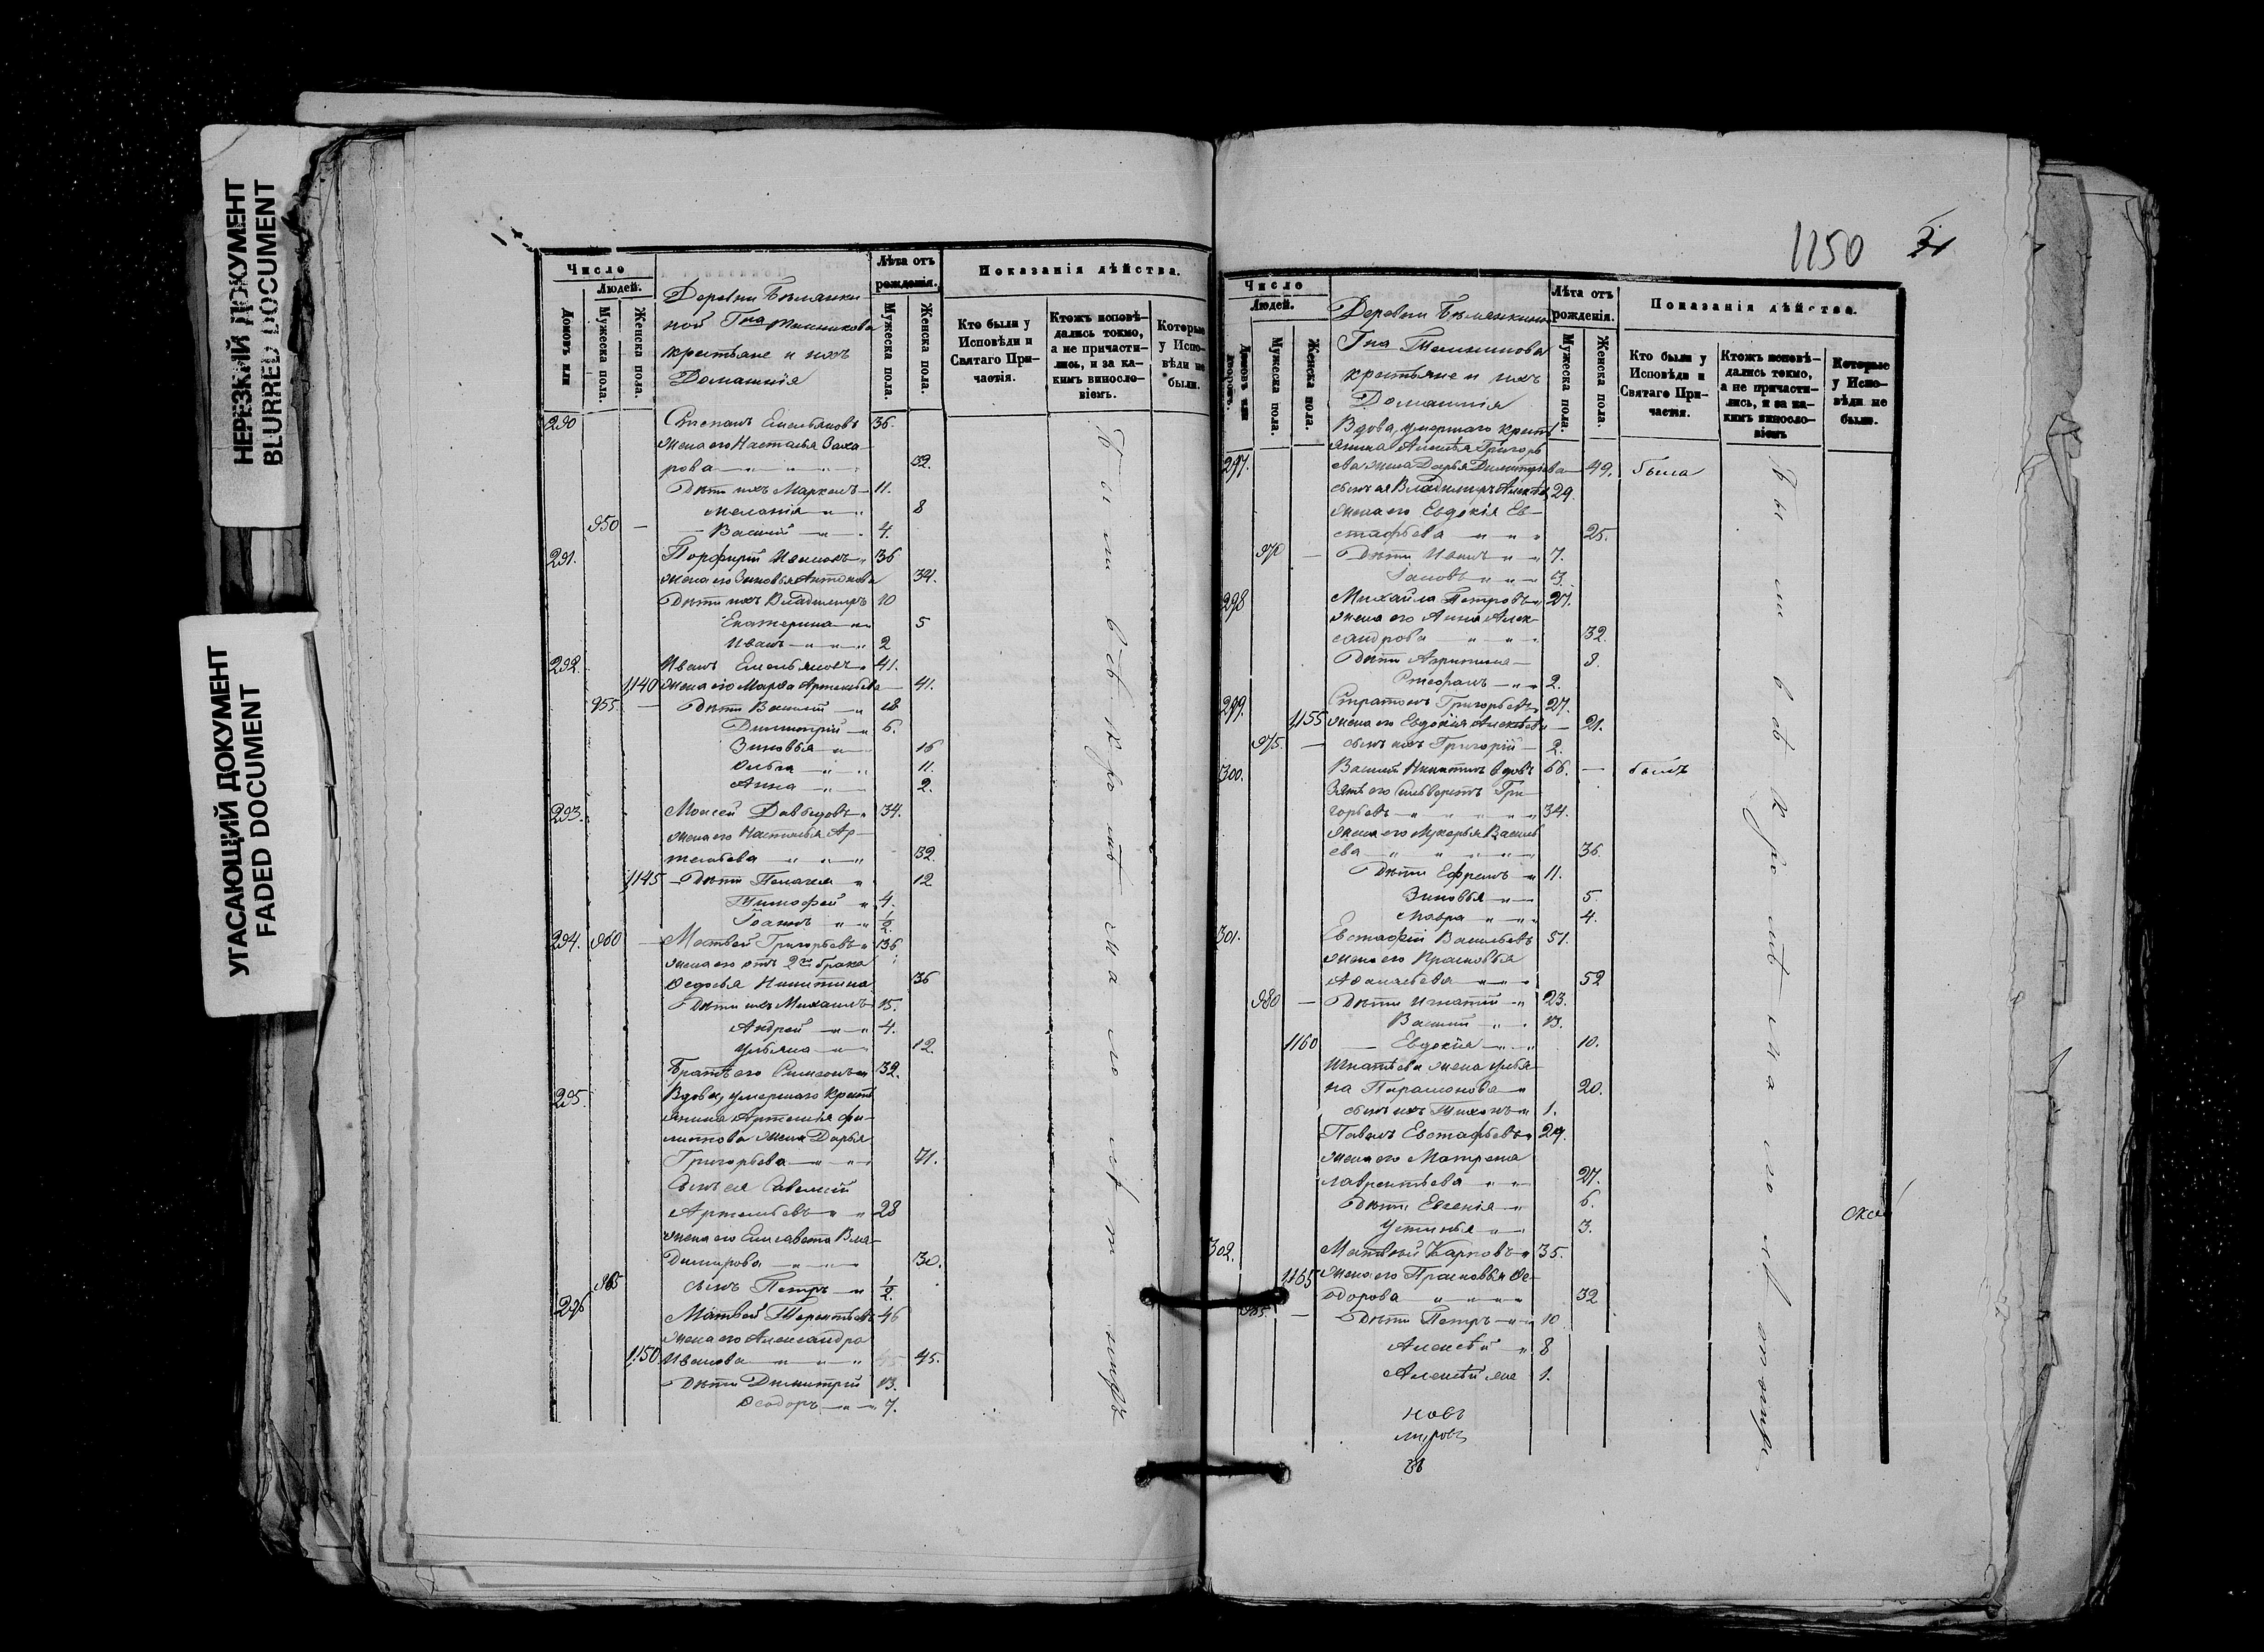 НЕРЕЗКИЙ ДОКУМЕНТ
BLURRED DOCUMENT
УГАСАЮЩИЙ ДОКУМЕНТ
FADED DOCUMENT
Число
Людей.
Домовъ или
Мужеска пола.
Женска пола.
Деревни Бѣлянки
ной Гна
крестьяне и ихъ
Домашнія
Лѣта отъ
рожденія.
Мужеска пола.
Женска пола.
Показанія дѣйства.
Кто были у
Исповѣди и
Святаго При-
частія.
Ктожъ исповѣ-
дались токмо,
а не причасти-
лись, и за ка-
кимъ виносло-
віемъ.
Которые
у Испо-
вѣди не
были.
290 Степанъ Емельяновъ 36.
жена его Настасья Заха-
рова 32.
Дѣти ихъ Маркелъ 11.
Меланія 8
950 — Василій 4.
291. Порфирій Ивановъ 36
жена его Зиновья Антонова 34.
Дѣти ихъ Владимиръ 10
Екатерина 5
Иванъ 2
292. Иванъ Емельяновъ 41.
1140 жена его Марѳа Артемьева 41.
955. — Дѣти Василій 18
Димитрій 6.
Зиновья 16
Ольга 11.
Анна 2.
293. Моисей Давыдовъ 34.
жена его Настасья Ар-
темьева 32.
1145 — Дѣти Пелагея 12
Тимофей 4.
Іоаннъ 1/2
294. 960 — Матвей Григорьевъ 36
жена его отъ 2го брака
Ѳедосья Никитина 36
Дѣти ихъ Михаилъ 15.
Андрей 4.
Ульяна 12.
Братъ его Симеонъ 32.
295. Вдова, умершаго кресть
янина Артемія Фи-
липпова жена Дарья
Григорьева 71.
Сынъ ея Савелій
Артемьевъ 28
жена его Елисавета Вла-
димирова 30.
965 сынъ Петръ 1/2
296 Матвей Терентьевъ 46
жена его Александра
1150 Иванова 45.
Дѣти Димитрій 13.
Ѳеодоръ 7.
1150
Число
Людей.
Домовъ или
дворовъ.
Мужеска пола.
Женска пола.
Деревни Бѣлянкиной
Гна
крестьяне и ихъ
Домашнія
Лѣта отъ
рожденія.
Мужеска пола.
Женска пола.
Показанія дѣйства.
Кто были у
Исповѣди и
Святаго При-
частія.
Ктожъ исповѣ-
дались токмо,
а не причасти-
лись, и за ка-
кимъ виносло-
віемъ
Которые
у Испо-
вѣди не
были.
Вдова, умершаго кресть
янина Алексѣя Григорь
297. ева жена Дарья Димитріева 49. была
сынъ ея Владимиръ Алексѣв 29.
жена его Евдокія Ев-
стафьева 25.
970 — Дѣти Иванъ 7.
Іаковъ 3.
298 Михайла Петровъ 27.
жена его Анна Алек-
сандрова 32.
Дѣти Агрипина 8.
Стефанъ 2.
299. Стратонъ Григорьевъ 27.
1155 жена его Евдокія Алексѣева 21.
975. — сынъ ихъ Григорій 2.
300. Василій Никитинъ вдовъ 66. — былъ
Зять его Сильверстъ Гри-
горьевъ 34.
жена его Лукерья Василь
ева 36.
Дѣти Ефремъ 11.
Зиновья 5.
Мавра 4.
301. Евстафій Васильевъ 51.
жена его Прасковья
Аѳанасьева 52
980 — Дѣти Игнатій 23.
Василій 13.
1160 — Евдокія 10.
Игнатьева жена Улья
на Парамонова 20.
сынъ ихъ Тихонъ 1.
Павелъ Евстафьевъ 29.
жена его Матрена
Лаврентьева 27.
Дѣти Евгенія 6.
Устинья 3.
302. Матвѣй Карповъ 35.
1165 жена его Прасковья Ѳе-
одорова 32
985. — Дѣти Петръ 10
Алексѣй 8
Алексѣй же 1.